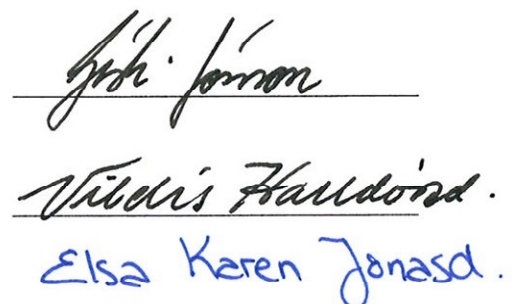 Jónsson
Vildís Halldórsd.
Elsa Karen Jónasd.